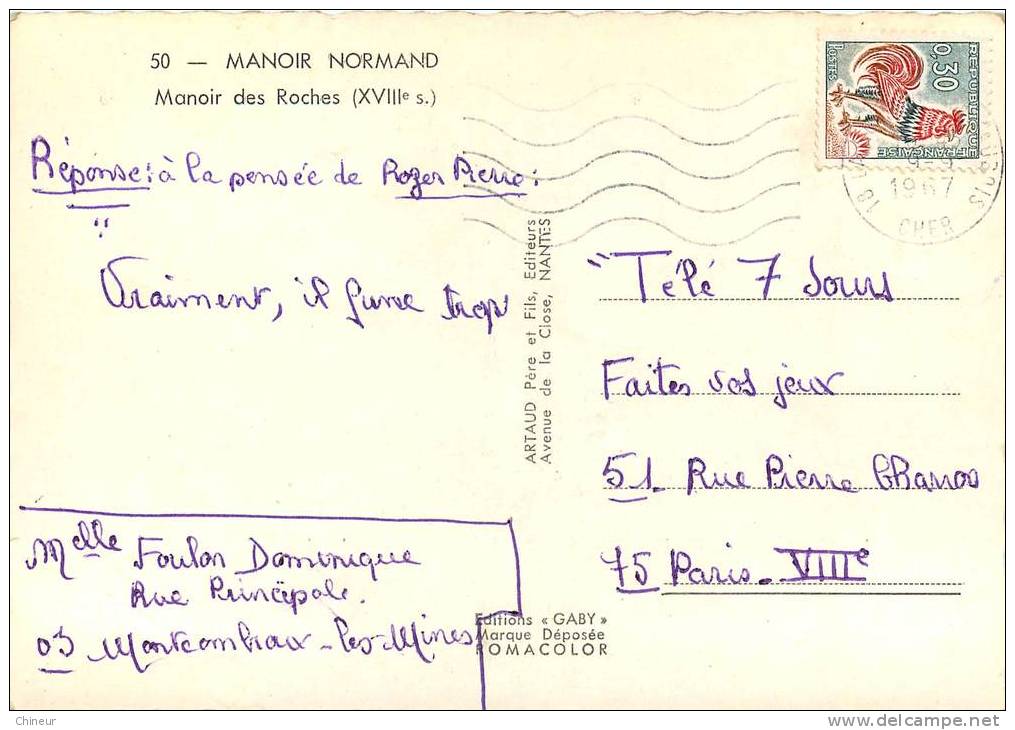 50 — MANOIR NORMAND
Manoir des Roches (XVIIIe s.)
Réponse: à la pensée de Roger Pierre:
Vraiment, il fume trop
Melle Foulon Dominique
Rue Principale.
03 Montcombroux-les-Mines
ARTAUD Père et Fils, Editeurs
Avenue de la Close, NANTES
Editions « GABY »
Marque Déposée
ROMACOLOR
REPUBLIQUE
FRANÇAISE
0,30
POSTES
18
1967
CHER
"Télé 7 Jours
Faites vos jeux
51 Rue Pierre Charron
75 Paris-VIIIe
Chineur
delcampe.net